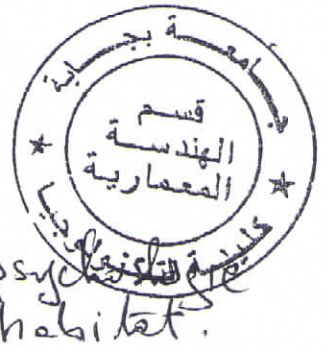 جامعة بجاية
قسم
الهندسة
المعمارية
كلية التكنولوجيا
habitat.